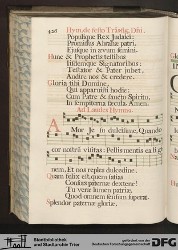 426 Hymn. de festo Trãsfig. Dñi.
Populique Rex Judaici:
Promissus Abrahæ patri,
Ejusque in ævum semini.
Hunc & Prophetis testibus
Iisdemque Signatoribus:
Testator & Pater jubet,
Audire nos & credere.
Gloria tibi Domine,
Qui apparuisti hodie:
Cum Patre & sancto Spiritu,
In sempiterna sæcula. Amen.
Ad Laudes Hymnus.
AMor Jesu dulcissime, Quando
cor nostrũ visitas: Pellis mentis cali-
nem, Et nos reples dulcedine.
Quam felix est, quem satias
Consors paternæ dexteræ!
Tu veræ lumen patriæ,
Quod omnem sensum superat.
Splendor paternæ gloriæ,
Stadtbibliothek
und Stadtarchiv Trier
gefördert durch die
DFG